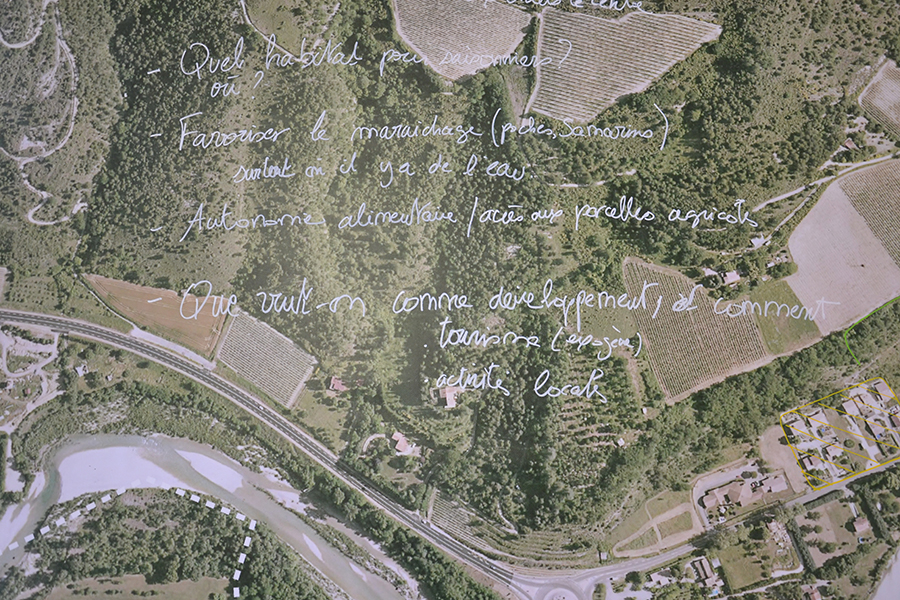 - Quel habitat pour saisonniers?
où?
- Favoriser le maraichage (poches, Samarins)
surtout où il y a de l'eau.
- Autonomie alimentaire / accès aux parcelles agricoles
- Que veut-on comme developpement, et comment
. tourisme
. activités locales